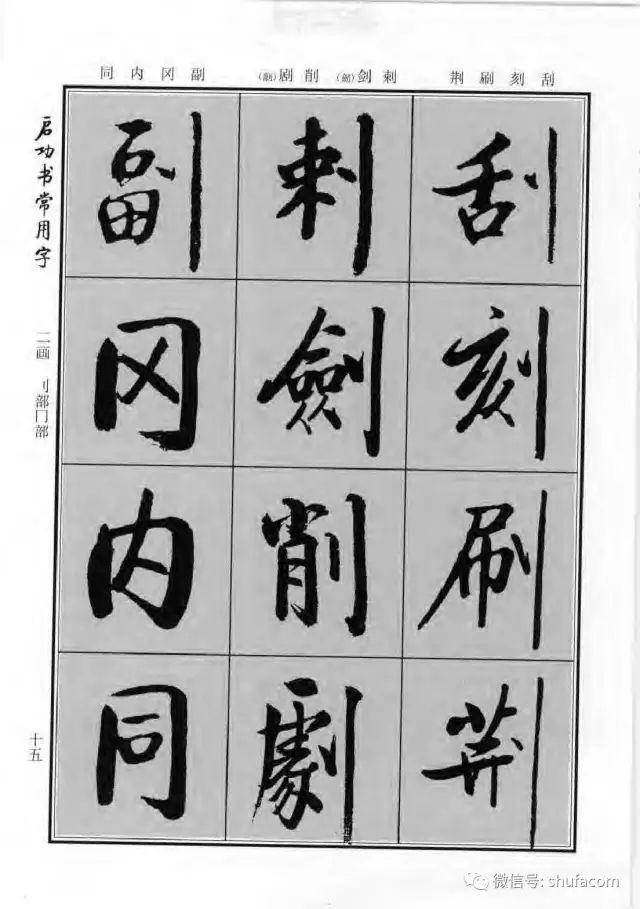 刮刻刷荆
刺剑(劍)削剧(劇)
副冈内同
刮
刻
刷
荆
刺
劍
削
劇
副
冈
内
同
启功书常用字
二画 刂部冂部
十五
微信号: shufacom